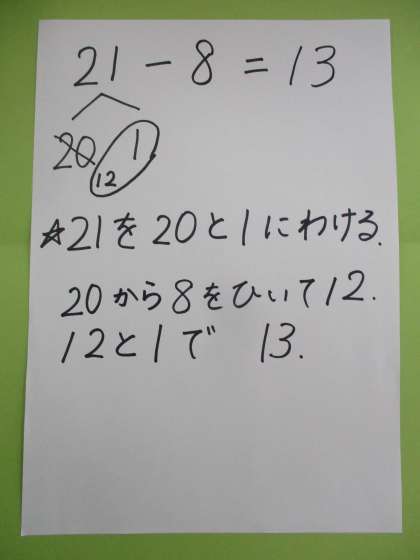 21 - 8 = 13
20 1
12
☆21を20と1にわける.
20から8をひいて12.
12と1で 13.